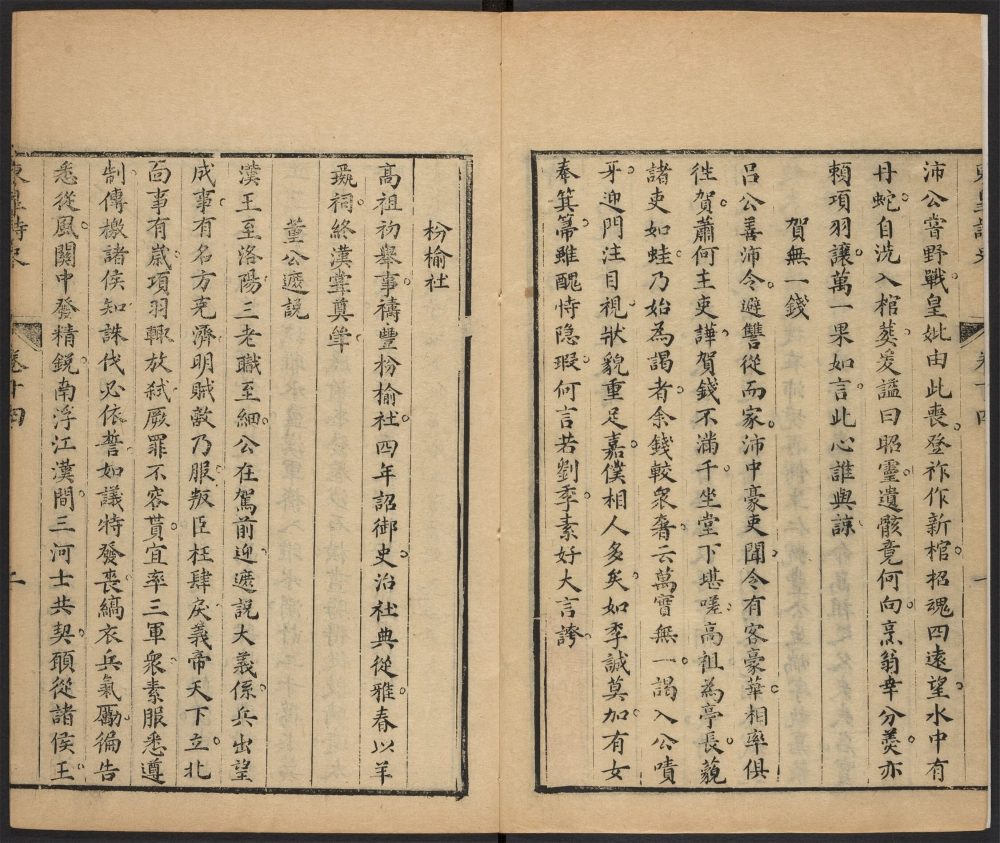 沛公嘗野戰皇妣由此喪登祚作新棺招魂四遠望水中有
丹蛇自洗入棺葬爰謚曰昭靈遺骸竟何向烹翁幸分羮亦
頼項羽讓萬一果如言此心誰與諒
賀無一錢
呂公善沛令避讐從而家沛中豪吏聞令有客豪華相率俱
徃賀蕭何主吏譁賀錢不滿千坐堂下堪嗟高祖為亭長藐
諸吏如蛙乃始為謁者余錢較衆奢云萬實無一謁入公嘖
牙迎門注目視狀貌重足嘉僕相人多矣如季誠莫加有女
奉箕箒雖醜恃隐瑕何言若劉季素好大言誇
枌榆社
高祖初舉事禱豐枌榆社四年詔御史治社典從雅春以羊
彘祠終漢嘗奠斝
董公遮説
漢王至洛陽三老職至細公在駕前迎遮說大義係兵出望
成事有名方克濟明賊敵乃服叛臣枉肆戾義帝天下立北
面事有嵗項羽輙放弒厥罪不容貰宜率三軍衆素服悉遵
制傳檄諸侯知誅伐必依誓如議特發喪縞衣兵氣勵徧告
悉從風關中發精鋭南浮江漢間三河士共契願從諸侯王
卷十四
二
卷十四
一